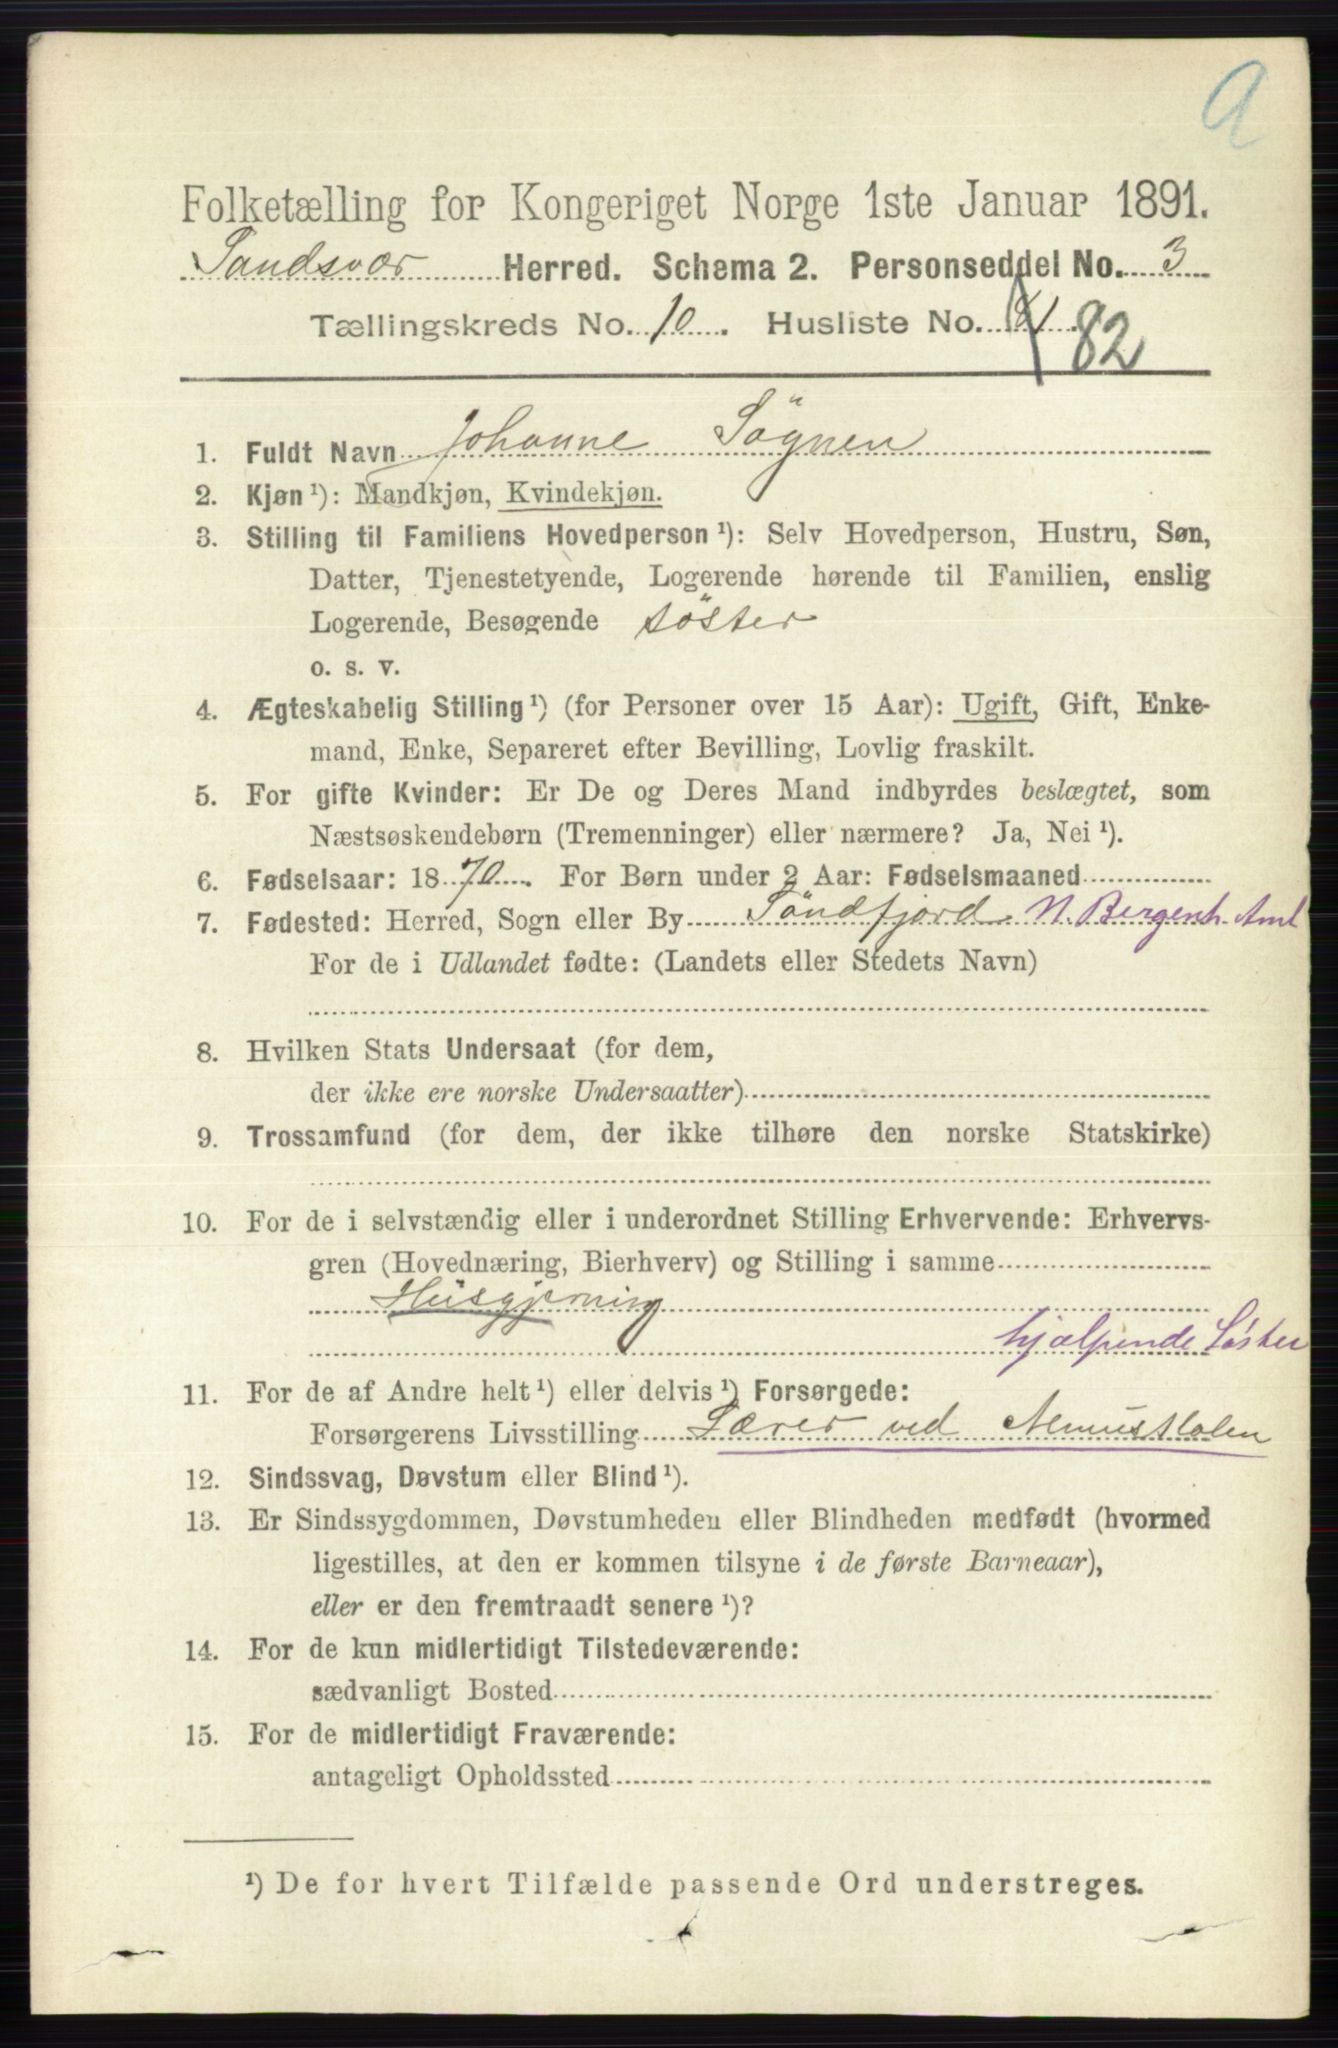 a
Folketælling for Kongeriget Norge 1ste Januar 1891.
Sandsvær Herred. Schema 2. Personseddel No. 3
Tællingskreds No. 10. Husliste No. 81 82
1. Fuldt Navn Johanne Sögnen
2. Kjøn¹): Mandkjøn, Kvindekjøn.
3. Stilling til Familiens Hovedperson¹): Selv Hovedperson, Hustru, Søn,
Datter, Tjenestetyende, Logerende hørende til Familien, enslig
Logerende, Besøgende söster
o. s. v.
4. Ægteskabelig Stilling¹) (for Personer over 15 Aar): Ugift, Gift, Enke-
mand, Enke, Separeret efter Bevilling, Lovlig fraskilt.
5. For gifte Kvinder: Er De og Deres Mand indbyrdes beslægtet, som
Næstsøskendebørn (Tremenninger) eller nærmere? Ja, Nei¹).
6. Fødselsaar: 1870. For Børn under 2 Aar: Fødselsmaaned
7. Fødested: Herred, Sogn eller By Söndfjord N. Bergenh. Amt
For de i Udlandet fødte: (Landets eller Stedets Navn)
8. Hvilken Stats Undersaat (for dem,
der ikke ere norske Undersaatter)
9. Trossamfund (for dem, der ikke tilhøre den norske Statskirke)
10. For de i selvstændig eller i underordnet Stilling Erhvervende: Erhvervs-
gren (Hovednæring, Bierhverv) og Stilling i samme
Husgjerning
hjælpende Søster
11. For de af Andre helt¹) eller delvis¹) Forsørgede:
Forsørgerens Livsstilling Lærer ved Almuskolen
12. Sindssvag, Døvstum eller Blind¹).
13. Er Sindssygdommen, Døvstumheden eller Blindheden medfødt (hvormed
ligestilles, at den er kommen tilsyne i de første Barneaar),
eller er den fremtraadt senere¹)?
14. For de kun midlertidigt Tilstedeværende:
sædvanligt Bosted
15. For de midlertidigt Fraværende:
antageligt Opholdssted
¹) De for hvert Tilfælde passende Ord understreges.